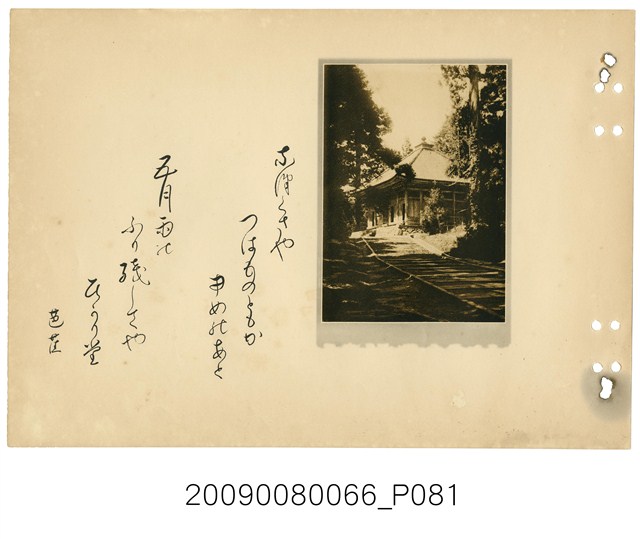 なつくさや
つはものともか
ゆめのあと
五月雨の
ふり残してや
ひかり堂
芭蕉
20090080066_P081